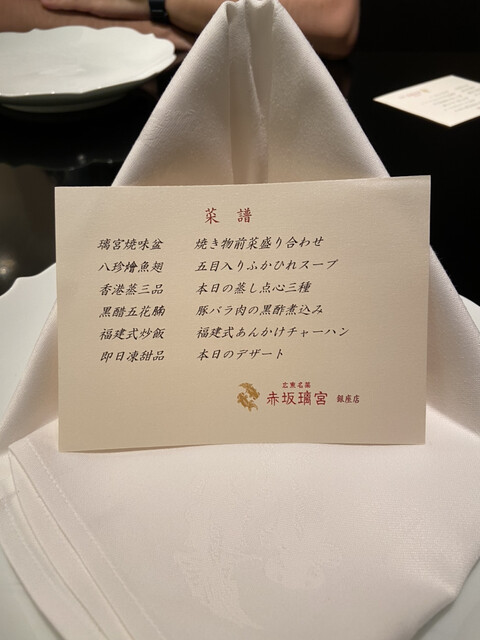 菜譜
璃宮焼味盆 焼き物前菜盛り合わせ
八珍燴魚翅 五目入りふかひれスープ
香港蒸三品 本日の蒸し点心三種
黒醋五花腩 豚バラ肉の黒酢煮込み
福建式炒飯 福建式あんかけチャーハン
即日凍甜品 本日のデザート
広東名菜
赤坂璃宮 銀座店